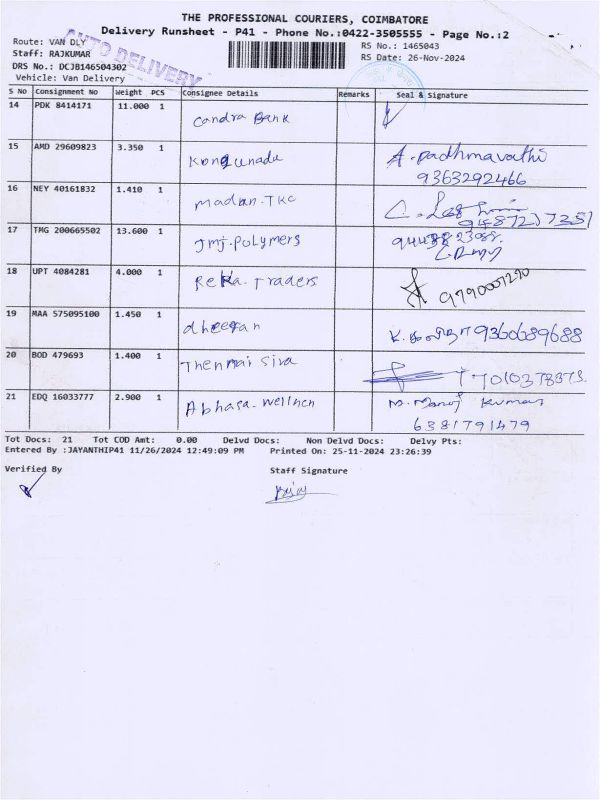 THE PROFESSIONAL COURIERS, COIMBATORE
Delivery Runsheet - P41 - Phone No.:0422-3505555 - Page No.:2
Route: VAN DLY
RS No.: 1465043
Staff: RAJKUMAR
RS Date: 26-Nov-2024
DRS No.: DCJB146504302
Vehicle: Van Delivery
AUTO DELIVERY
S No Consignment No Weight PCS Consignee Details Remarks Seal & Signature
14 PDK 8414171 11.000 1 Candra Bank
15 AMD 29609823 3.350 1 Kongunadu A. Padhmavathi
9363292466
16 NEY 40161832 1.410 1 Madan.TKC
17 TMG 200665502 13.600 1 Jmj.Polymers
18 UPT 4084281 4.000 1 Reka. Traders 9790007270
19 MAA 575095100 1.450 1 dheeran 9360689688
20 BOD 479693 1.400 1 Thenmai Siva 7010378373
21 EDQ 16033777 2.900 1 Abhasa. M. Manoj Kumar
6381791479
Tot Docs: 21 Tot COD Amt: 0.00 Delvd Docs: Non Delvd Docs: Delvy Pts:
Entered By :JAYANTHIP41 11/26/2024 12:49:09 PM Printed On: 25-11-2024 23:26:39
Verified By Staff Signature